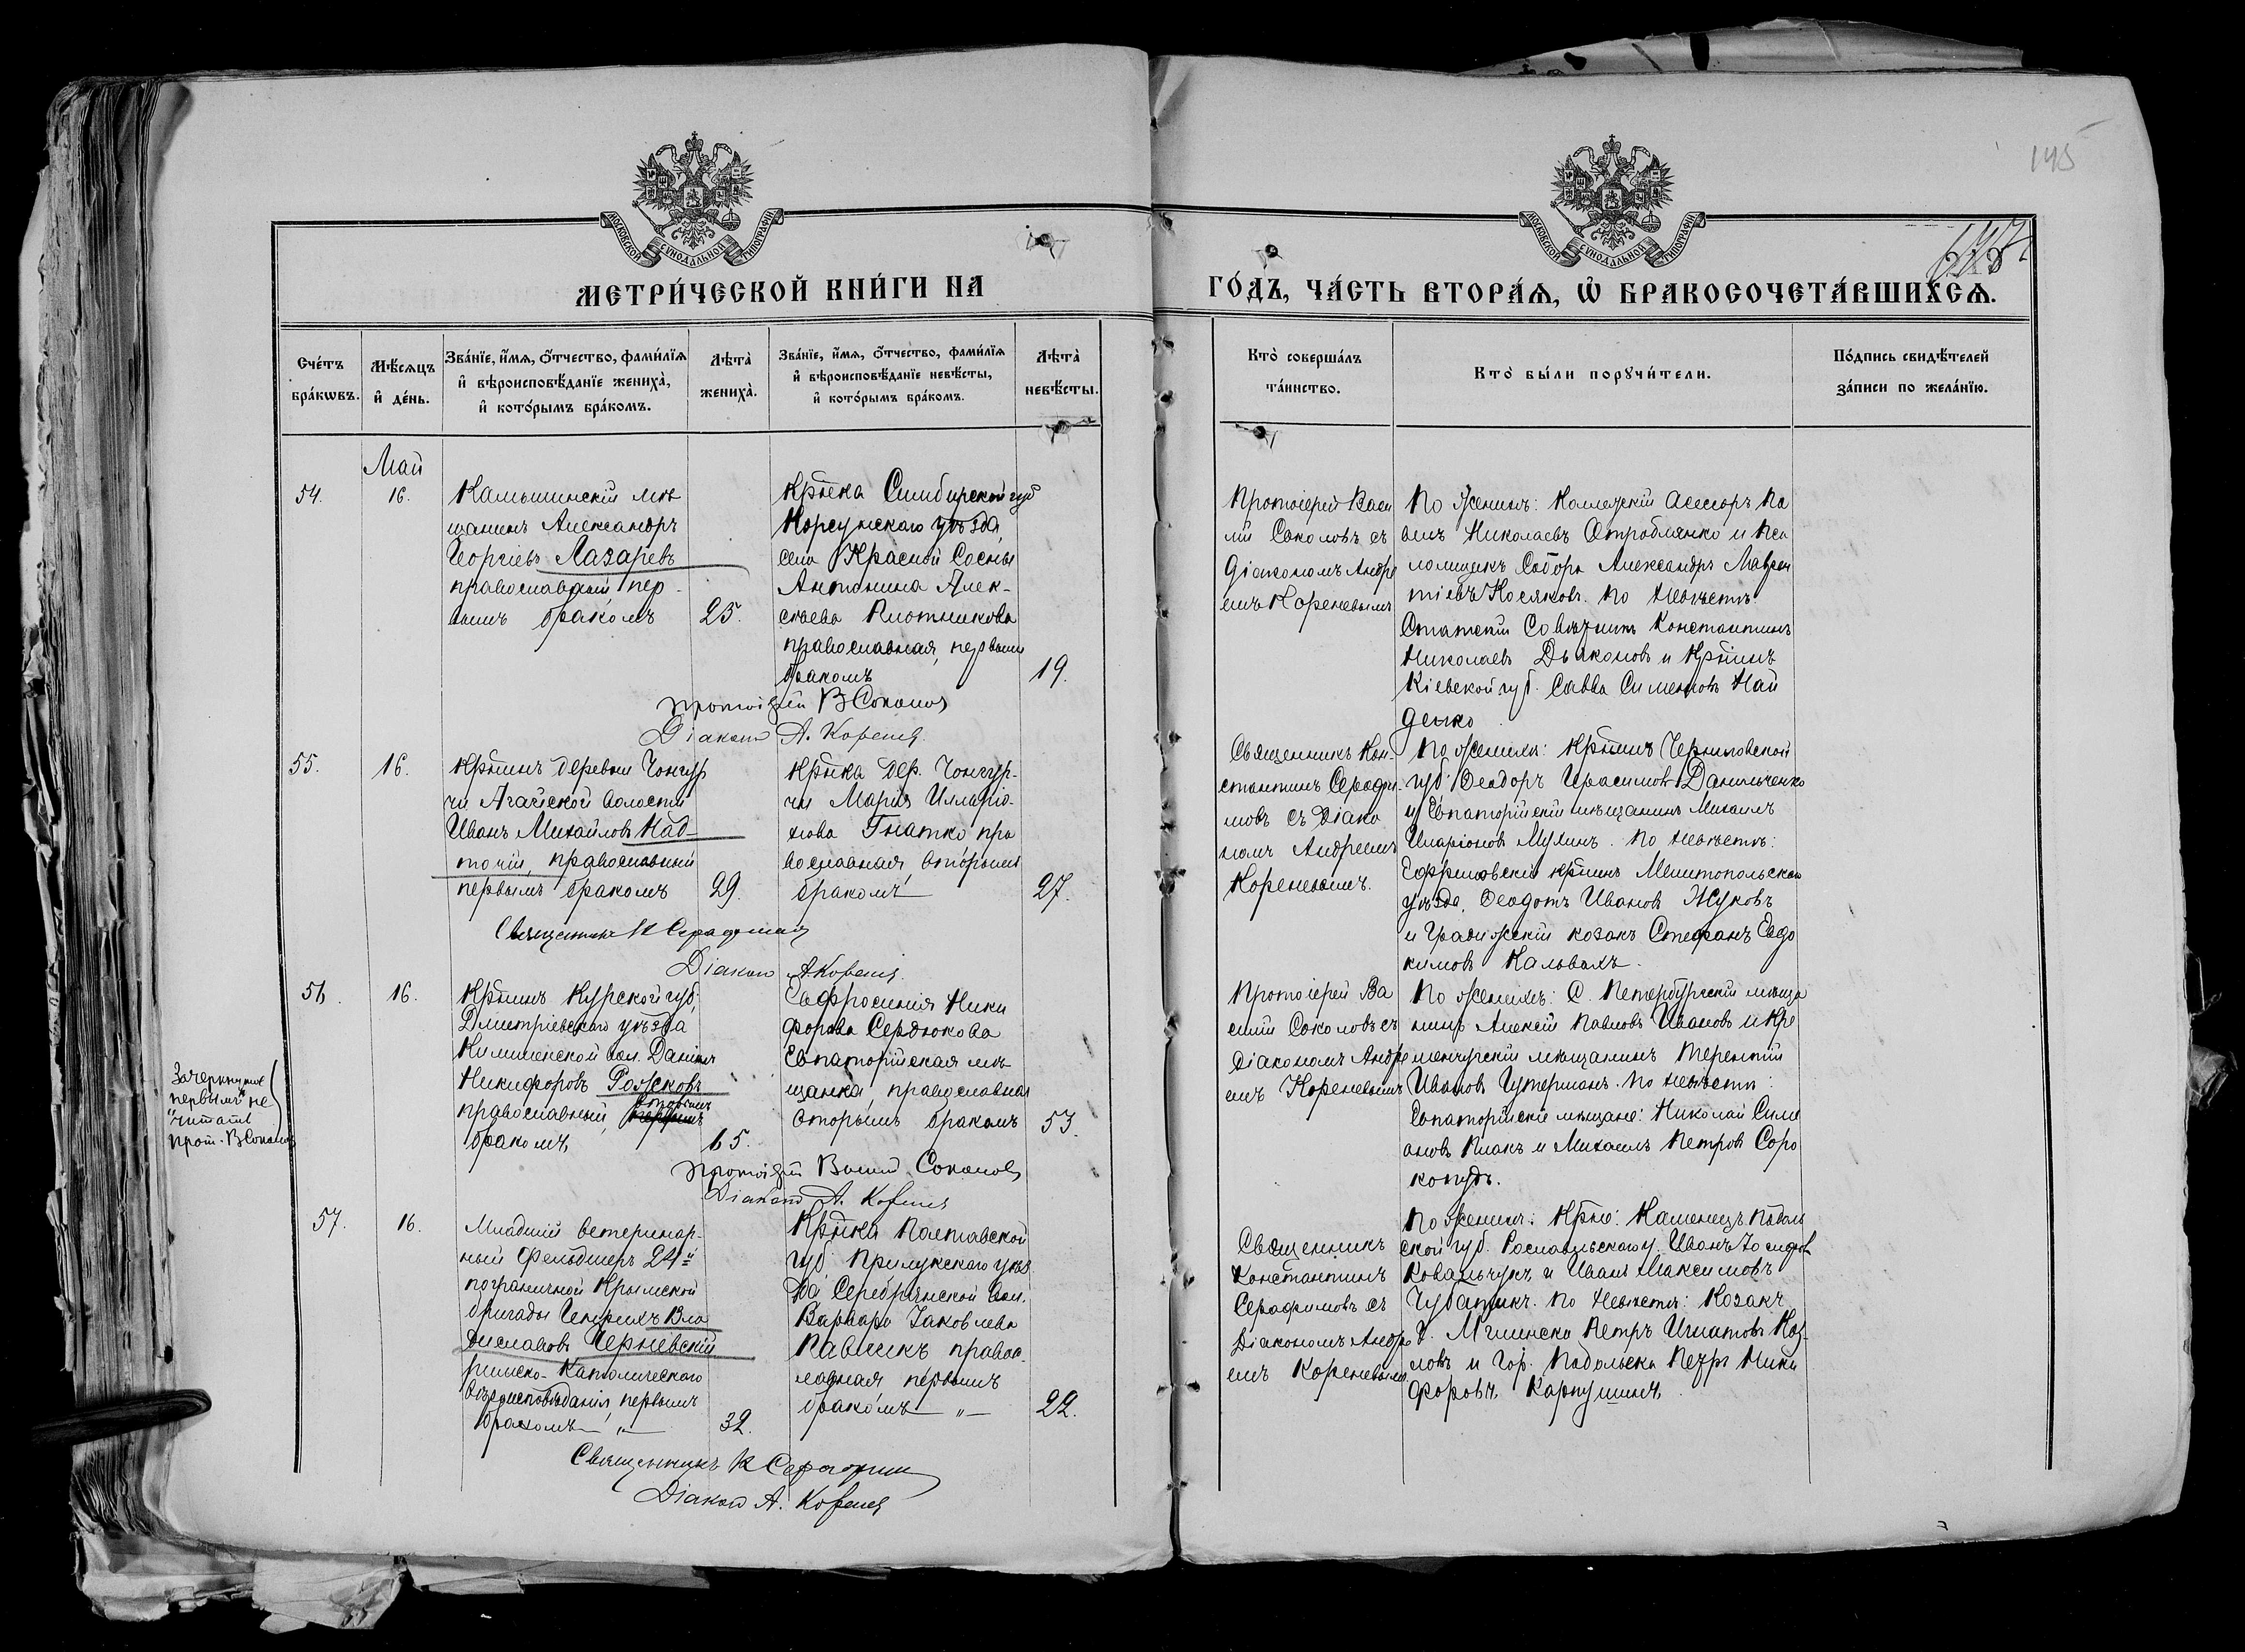 145
МОСКОВСКОЙ СѴНОДАЛЬНОЙ ТИПОГРАФІИ
МОСКОВСКОЙ СѴНОДАЛЬНОЙ ТИПОГРАФІИ
МЕТРИ́ЧЕСКОЙ КНИ́ГИ НА
ГО́ДЪ, ЧА́СТЬ ВТОРА́Ѧ, Ѽ БРАКОСОЧЕТА́ВШИХСѦ.
Счéтъ
брáкѡвъ.
Мѣ́сѧцъ
и҆ дéнь.
Звáнїе, и҆́мѧ, ѻ҆́тчество, фамѝлїѧ
и҆ вѣроисповѣ́данїе женихà,
и҆ котóрымъ брáкомъ.
Лѣтà
женихà.
Звáнїе, и҆́мѧ, ѻ҆́тчество, фамѝлїѧ
и҆ вѣроисповѣ́данїе невѣ́сты,
и҆ котóрымъ брáкомъ.
Лѣтà
невѣ́сты.
Ктò совершáлъ
тáинство.
Ктò бы́ли порꙋчи́тели.
Пóдпись свидѣ́телей
зáписи по желáнїю.
Май
54.
16.
Камышинскій мѣ
щанинъ Александръ
Георгіевъ Лазаревъ
православный, пер-
вымъ бракомъ
25.
Кр̃нка Симбирской губ
Корсунскаго уѣзда,
села Красной Сосны
Антонина Алек-
сѣева Плотникова
православная, первымъ
бракомъ
19.
Протоіерей Васи
лій Соколовъ съ
діакономъ Андре
емъ Кореневымъ
По женихѣ: Коллежскій Асессоръ Па
велъ Николаевъ и Пса
ломщикъ Собора Александръ Лаврен
тіевъ Косяковъ. По невѣстѣ:
Статскій Совѣтникъ Константинъ
Николаевъ Дьяконовъ и Кр̃нинъ
Кіевской губ. Савва Симеоновъ Най
денко
Протоіерей В Соколов
Діаконъ А. Коренев
55.
16.
Кр̃нинъ деревни Чонгур
чи Агайской волости
Иванъ Михайловъ Над-
точій, православный
первымъ бракомъ
29.
Кр̃нка дер. Чонгур-
чи Марія Илларіо-
нова Гнатко пра
вославная, вторымъ
бракомъ
27.
Священникъ Кон-
стантинъ Серафи-
мовъ съ Діако
номъ Андреемъ
Кореневымъ.
По женихѣ: Кр̃нинъ Черниговской
губ. Ѳеодоръ Герасимовъ Данильченко
и Евпаторійскій мѣщанинъ Михаилъ
Иларіоновъ Мухинъ. По невѣстѣ:
кр̃нинъ Мелитопольскаго
уѣзда, Ѳеодотъ Ивановъ Жуковъ
и Градижскій козакъ Стефанъ Евдо
кимовъ
Священникъ К Серафимов
Діаконъ А. Коренев
56.
16.
Кр̃нинъ Курской губ.
Дмитріевскаго уѣзда
вол. Даніилъ
Никифоровъ Рожковъ
вторымъ
православный, первымъ
бракомъ,
65.
Евфросинія Ники
форова Сердюкова
Евпаторійская мѣ
щанка, православная
вторымъ бракомъ
53.
Протоіерей Ва
силій Соколовъ съ
діакономъ Андре
емъ Кореневымъ
По женихѣ: С. Петербургскій мѣща
нинъ Алексѣй Павловъ Ивановъ и Кре
менчугскій мѣщанинъ Терентій
Ивановъ Гутерманъ. По невѣстѣ:
Евпаторійскіе мѣщане: Николай Симе
оновъ и Михаилъ Петровъ Соро
копудъ.
Зачеркнутое
„первымъ" не
читать
прот. В Соколов
Протоіерей Васил Соколов
Діаконъ А. Коренев
57.
16.
Младшій ветеринар-
ный Фельдшеръ 24й
пограничной Крымской
бригады Генрихъ Вла
диславовъ Черневскій
римско-католическаго
вѣроисповѣданія, первымъ
бракомъ — „ —
32.
Кр̃нка Полтавской
губ. Прилукскаго уѣз
да Серебрянской вол.
Варвара Іаковлева
Павликъ правос-
лавная первымъ
бракомъ — „ —
22.
Священникъ
Константинъ
Серафимовъ съ
Діакономъ Андре
емъ Кореневымъ
По женихѣ: Кр̃не: Каменецъ Подоль
ской губ. у. Иванъ Іосифовъ
Ковальчукъ и Иванъ Максимовъ
Чубатикъ. По невѣстѣ: Козакъ
г. Мглинска Петръ Игнатовъ Коз-
ловъ и Гор. Подольска Петръ Ники
форовъ Карпушинъ.
Священникъ К Серафимов
Діаконъ А. Коренев